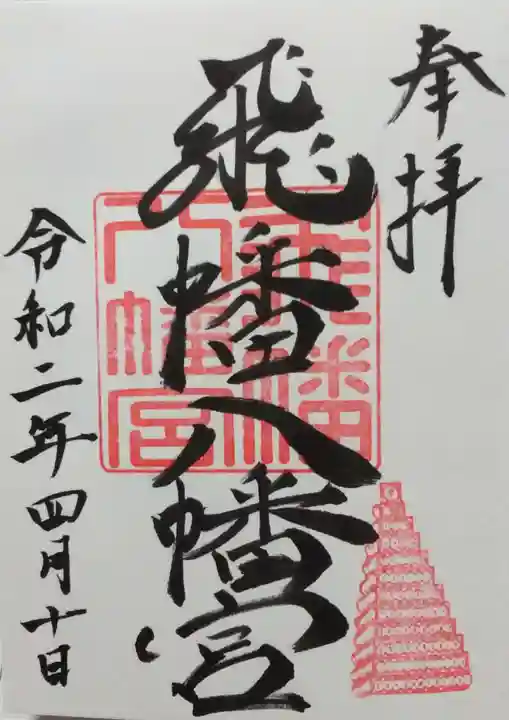 奉拝
飛幡八幡宮
飛幡八幡宮
令和二年四月十日